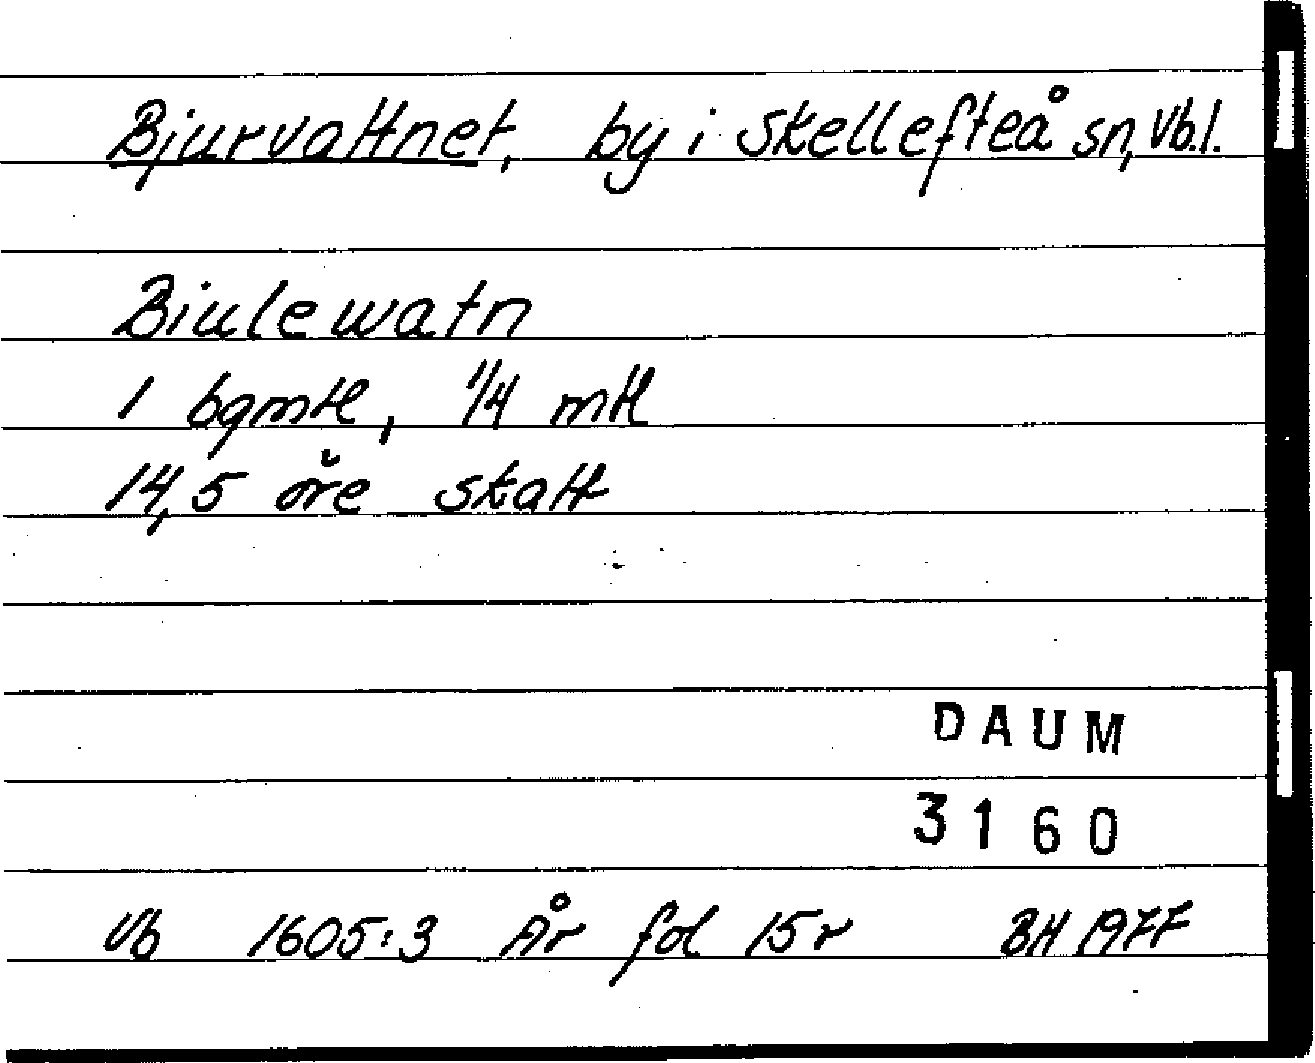 Bjurvattnet, by i Skellefteå sn, Vb.l.
Biulewatn
1 bgmtl, 1/4 mtl
14,5 öre skatt
DAUM
3160
Vb 1605:3 År fol 15r BH 1977